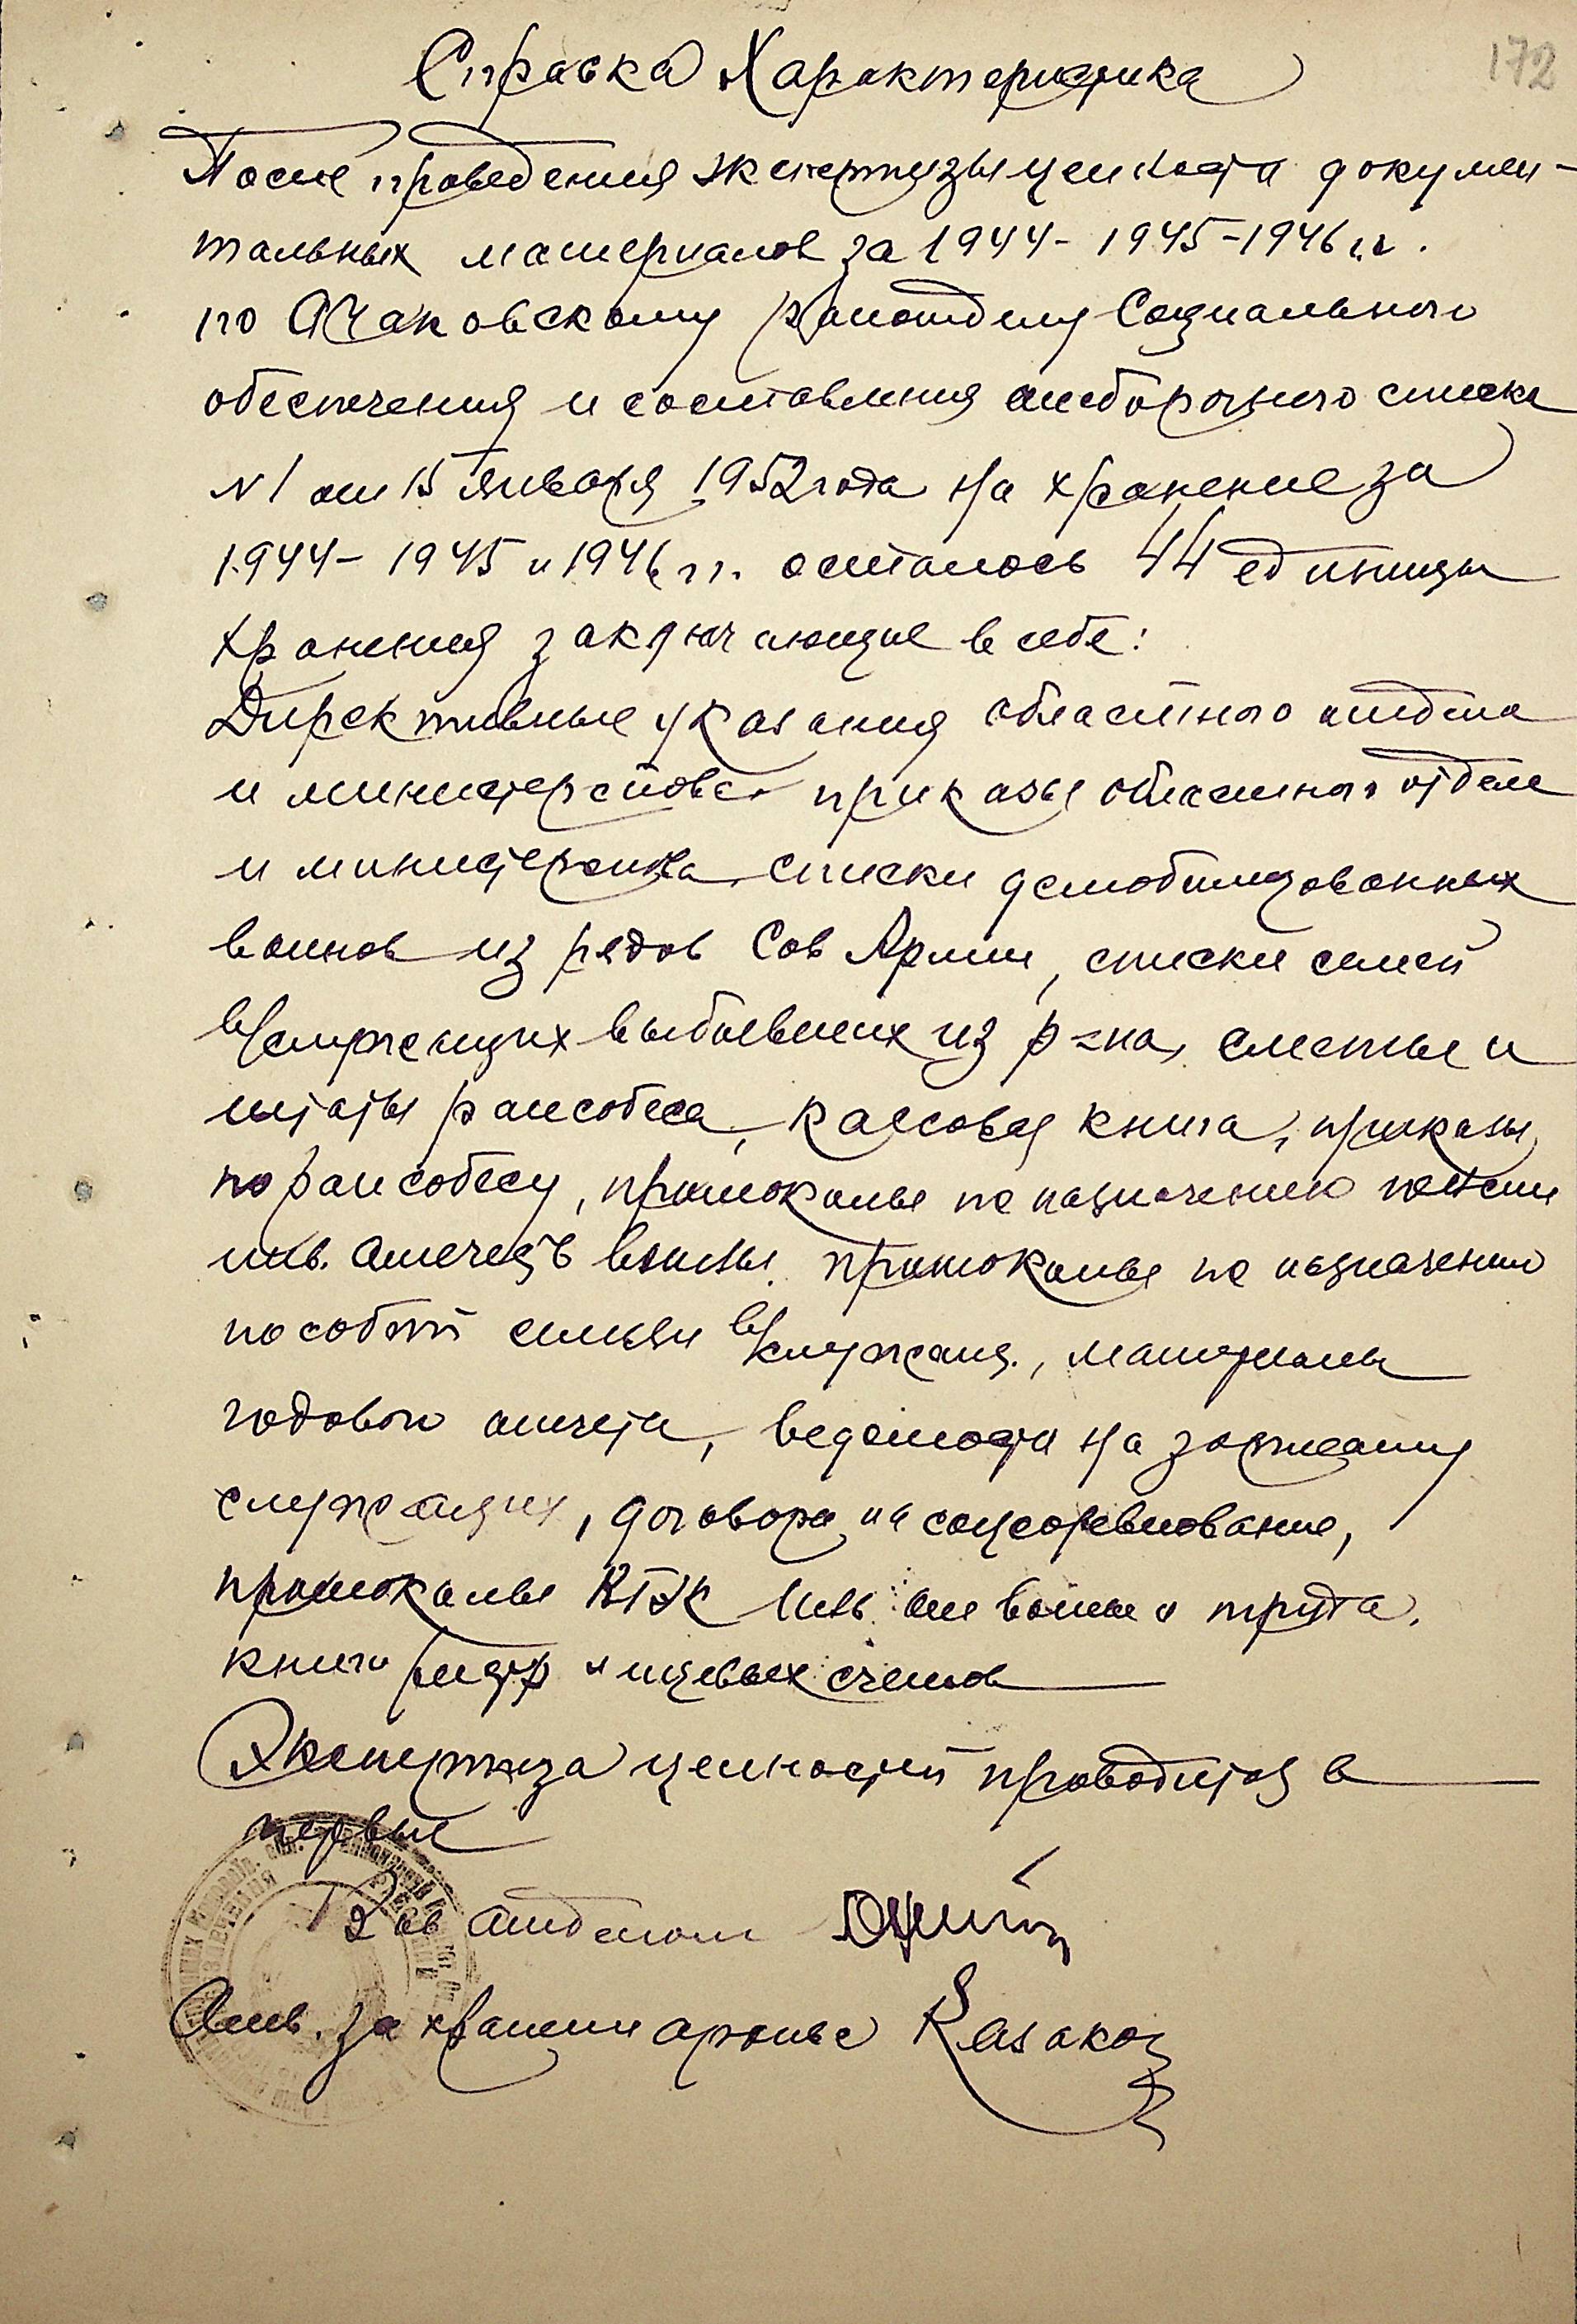 172
Справка Характеристика
После проведения экспертизы ценности докумен-
тальных материалов за 1944- 1945-1946 г.г.
по Очаковскому райотделу Социального
обеспечения и составления отборочного списка
N 1 от 15 января 1952 года на хранение за
1944- 1945 и 1946 г.г. осталось 44 единицы
хранения заключающие в себе:
Директивные указания областного отдела
и министерства приказы областного отдела
и министерства, списки демобилизованных
воинов из рядов Сов Армии, списки семей
в/служащих выбывших из р-на, сметы и
штаты райсобеса, кассовая книга, приказы
по райсобесу, протоколы по назначению пенсии
инв. отечеств войны. протоколы по назначению
пособий семьям в/служащ., материалы
годового отчета, ведомости на зарплату
служащих, договора на соцсоревнование,
протоколы ВТЭК инв. от войны и труда.
книги регистр лицевых счетов
Экспертиза ценностей проводится в
первые
Зав отделом
Отв. за хранение архива Казакоз